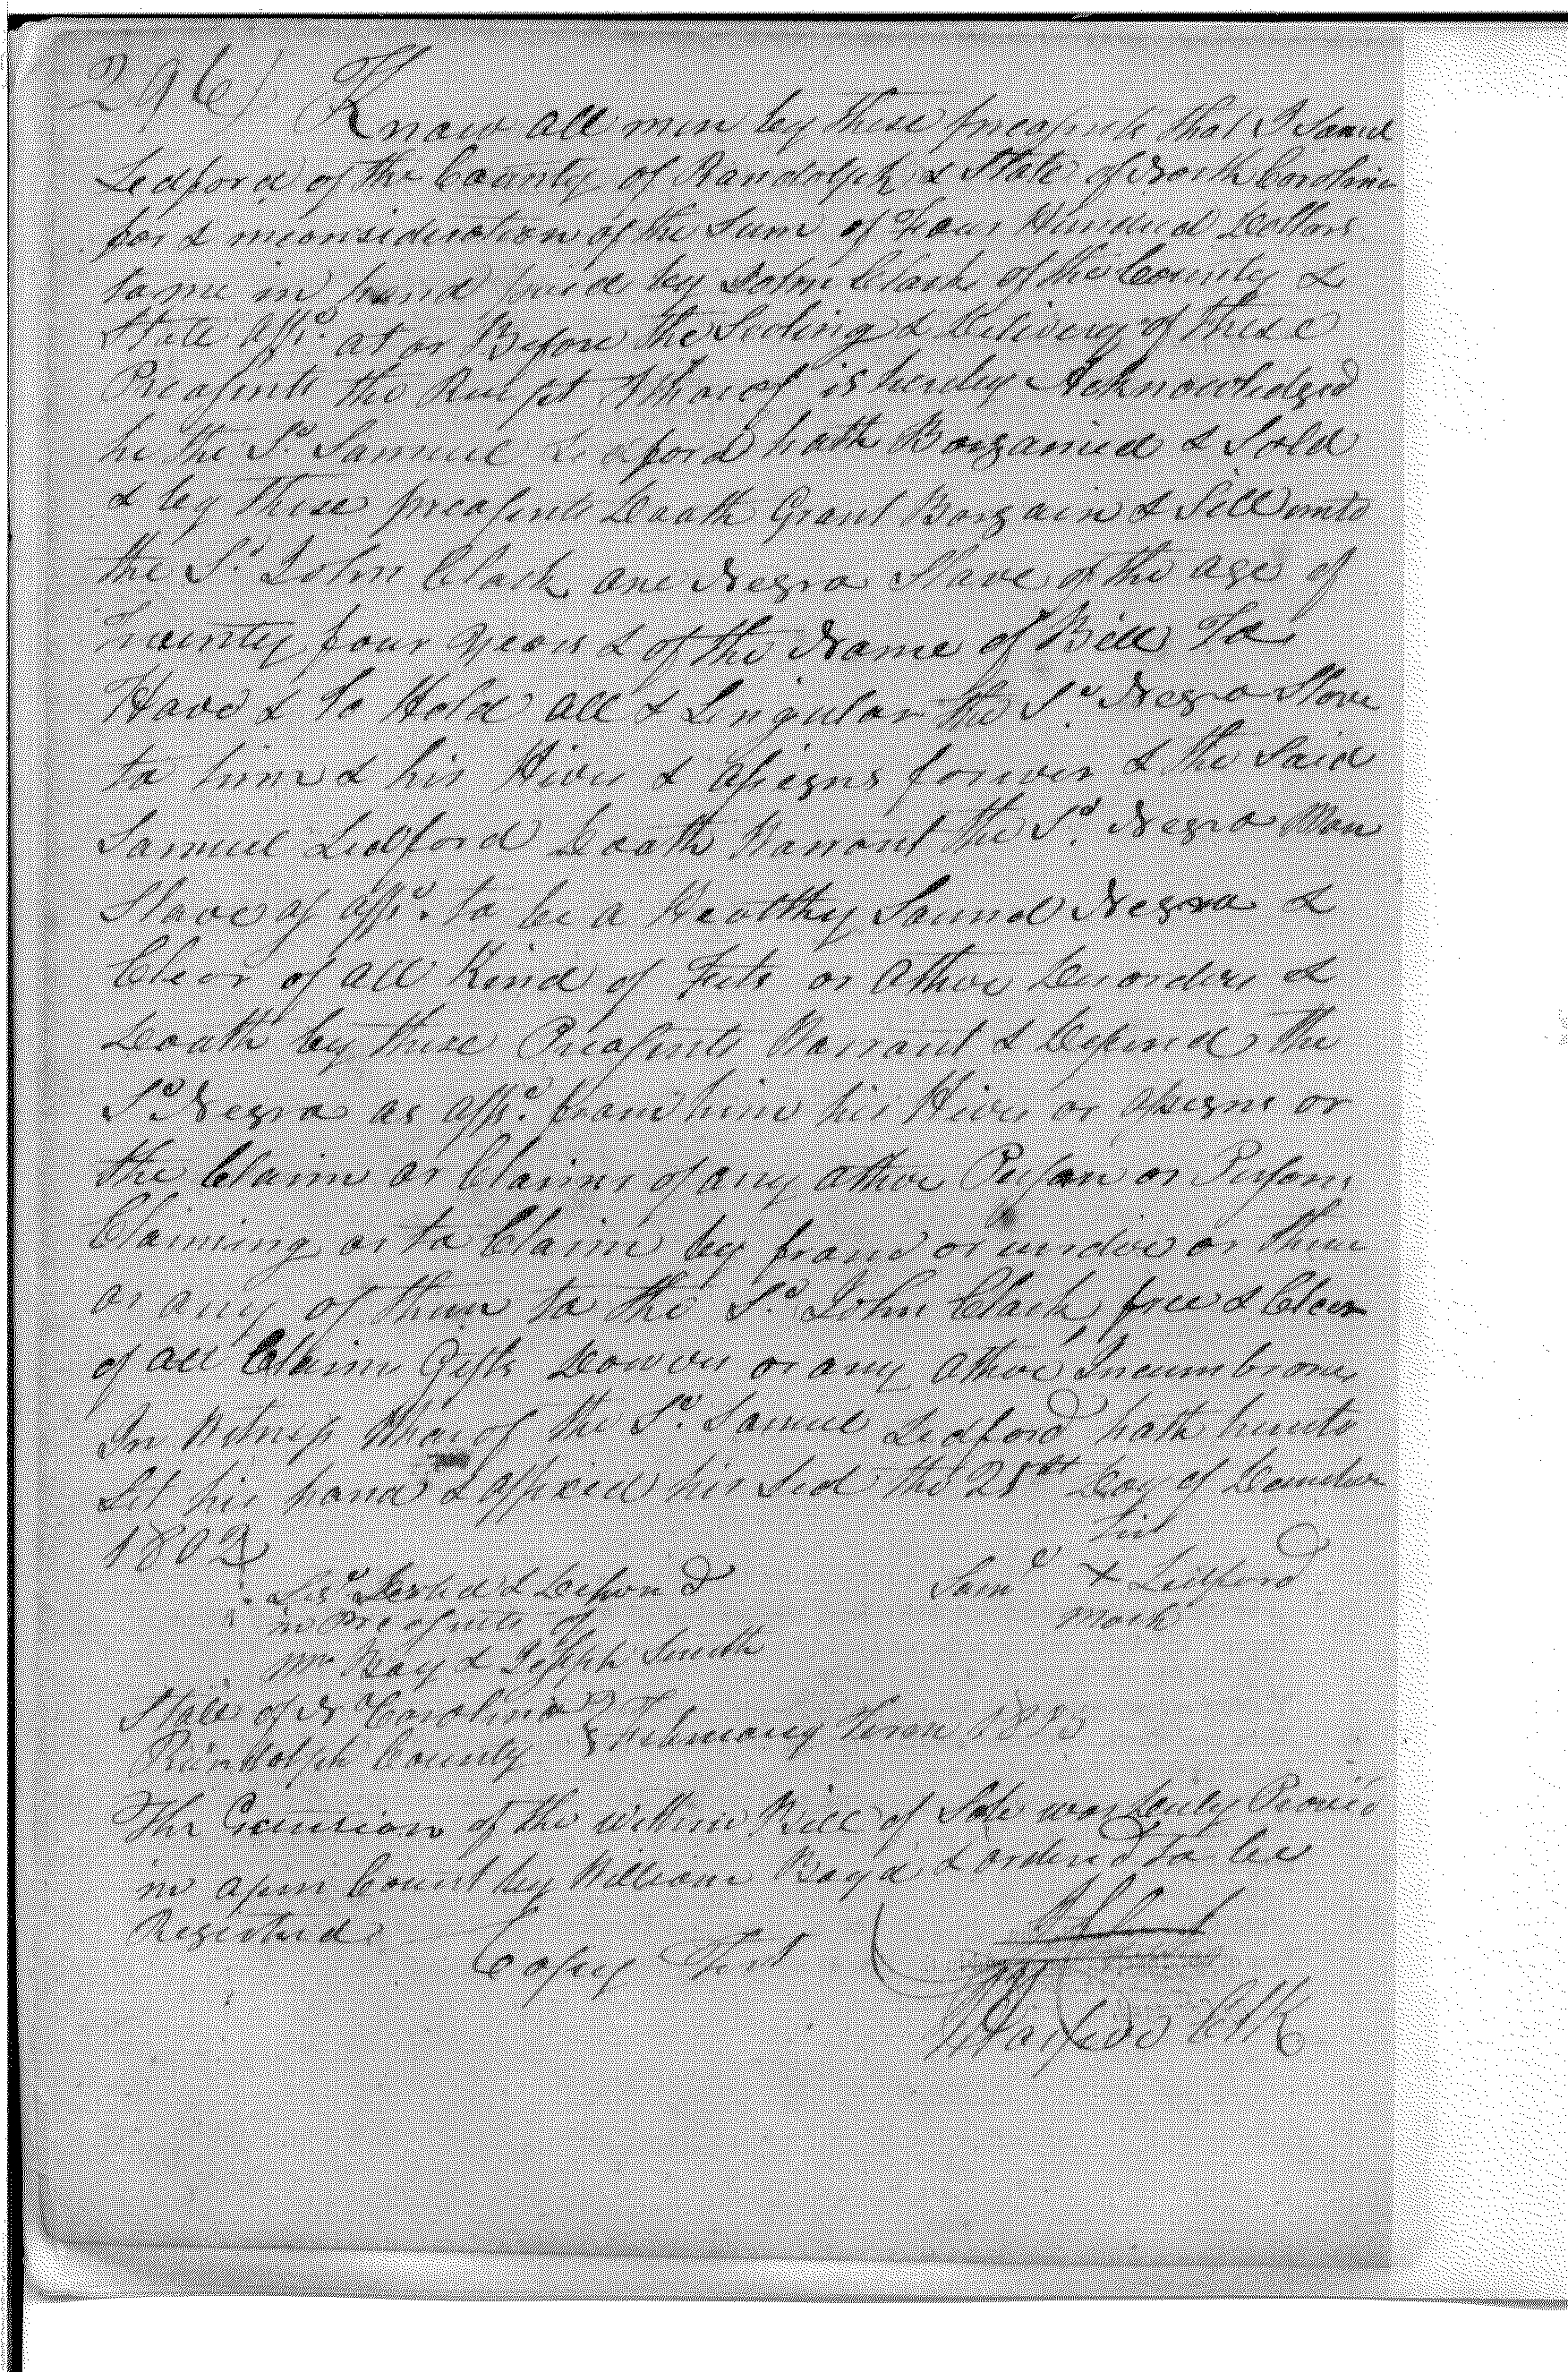 296)
Know all men by these preasents that I Samuel
Ledford of the County of Randolph & State of North Carolina
for & inconsideration of the Sum of Four Hundred Dollars
to me in hand paid by John Clark of the County &
State affsd. at or Before the Sealing & Delivery of these
Preasents the Receipt Whareof is hereby Acknowledged
he the Sd. Samuel Ledford hath Bargained & Sold
& by these preasents Doath Grant Bargain & Sell unto
the Sd. John Clark one Negro Slave of the age of
Twenty four years & of the Name of Bill To
Have & to Hold all & Singular the Sd. Negro Slave
to him & his Hires & assigns forever & the Said
Samuel Ledford Doath Warrant the Sd. Negro Man
Slave of affsd. to be a Healthy Sound Negro &
Clear of all Kind of Feets or other Disorders &
Doath by these Preasents Warrant & Defend the
Sd Negro as affsd. from him his Hires or assigns or
the Claim or Claims of any other Person or Persons
Claiming or to Claim by from or under or them
or any of them to the Sd. John Clark free & Clear
of all Claims Gifts Dowers or any other Incumbrance
In Witness Whareof the Sd. Samuel Ledford hath hereto
Set his hand & affixed his Seal the 25th Day of December
1802
his
Saml X Ledford
mark
in Preasents of
Wm Boyd & Joseph Smith
State of N Carolina
Randolph County } February Term 1803
The Execution of the within Bill of Sale was Duly Proved
in open Court by William Boyd & ordered to be
Registred
Copy Test
J Harper Clk